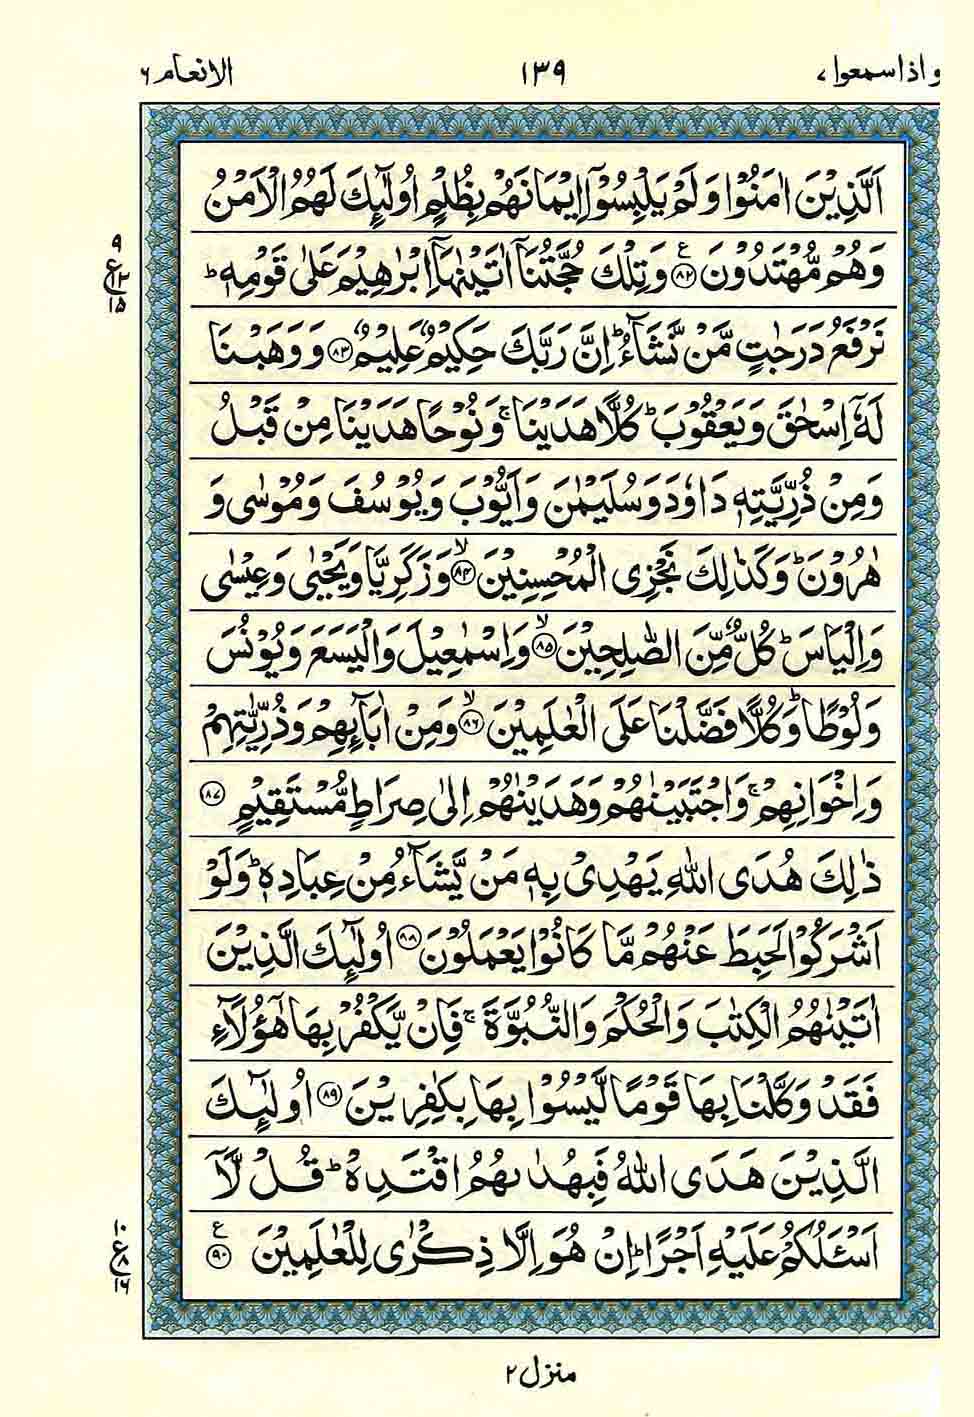 واذا سمعوا ٧
١٣٩
الانعام ٦
اَلَّذِيْنَ اٰمَنُوْا وَلَمْ يَلْبِسُوْۤا اِيْمَانَهُمْ بِظُلْمٍ اُولٰٓئِكَ لَهُمُ الْاَمْنُ
وَهُمْ مُّهْتَدُوْنَ ۧ‏﴿۸۲﴾ وَتِلْكَ حُجَّتُنَاۤ اٰتَيْنٰهَاۤ اِبْرٰهِيْمَ عَلٰى قَوْمِهٖ ؕ
نَرْفَعُ دَرَجٰتٍ مَّنْ نَّشَآءُ ؕ اِنَّ رَبَّكَ حَكِيْمٌ عَلِيْمٌ ﴿۸۳﴾ وَوَهَبْنَا
لَهٗۤ اِسْحٰقَ وَيَعْقُوْبَ ؕ كُلًّا هَدَيْنَا ۚ وَنُوْحًا هَدَيْنَا مِنْ قَبْلُ
وَمِنْ ذُرِّيَّتِهٖ دَاوٗدَ وَسُلَيْمٰنَ وَاَيُّوْبَ وَيُوْسُفَ وَمُوْسٰى وَ
هٰرُوْنَ ؕ وَكَذٰلِكَ نَجْزِى الْمُحْسِنِيْنَ ۙ﴿۸۴﴾ وَزَكَرِيَّا وَيَحْيٰى وَعِيْسٰى
وَاِلْيَاسَ ؕ كُلٌّ مِّنَ الصّٰلِحِيْنَ ۙ﴿۸۵﴾ وَاِسْمٰعِيْلَ وَالْيَسَعَ وَيُوْنُسَ
وَلُوْطًا ؕ وَكُلًّا فَضَّلْنَا عَلَى الْعٰلَمِيْنَ ۙ﴿۸۶﴾ وَمِنْ اٰبَآئِهِمْ وَذُرِّيّٰتِهِمْ
وَاِخْوَانِهِمْ ۚ وَاجْتَبَيْنٰهُمْ وَهَدَيْنٰهُمْ اِلٰى صِرَاطٍ مُّسْتَقِيْمٍ ﴿۸۷﴾
ذٰلِكَ هُدَى اللّٰهِ يَهْدِىْ بِهٖ مَنْ يَّشَآءُ مِنْ عِبَادِهٖ ؕ وَلَوْ
اَشْرَكُوْا لَحَبِطَ عَنْهُمْ مَّا كَانُوْا يَعْمَلُوْنَ ﴿۸۸﴾ اُولٰٓئِكَ الَّذِيْنَ
اٰتَيْنٰهُمُ الْكِتٰبَ وَالْحُكْمَ وَالنُّبُوَّةَ ۚ فَاِنْ يَّكْفُرْ بِهَا هٰٓؤُلَآءِ
فَقَدْ وَكَّلْنَا بِهَا قَوْمًا لَّيْسُوْا بِهَا بِكٰفِرِيْنَ ﴿۸۹﴾ اُولٰٓئِكَ
الَّذِيْنَ هَدَى اللّٰهُ فَبِهُدٰىهُمُ اقْتَدِهْ ؕ قُلْ لَّاۤ
اَسْئَلُكُمْ عَلَيْهِ اَجْرًا ؕ اِنْ هُوَ اِلَّا ذِكْرٰى لِلْعٰلَمِيْنَ ﴿۹۰﴾ ع
٩
ع ١٣
١٥
١٠
ع ٨
١٦
منزل ٢